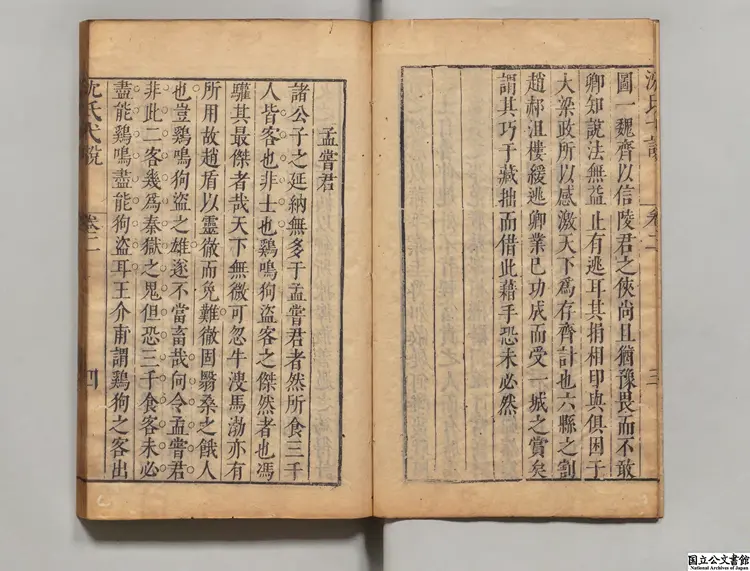 沈氏弋說 卷二 三
圖一魏齊以信陵君之俠尚且猶豫畏而不敢
卿知說法無益止有逃耳其捐相印與俱困于
大梁政所以感激天下為存齊計也六縣之割
趙郝沮樓緩逃卿業已功成而受一城之賞矣
謂其巧于藏拙而借此藉手恐未必然
孟嘗君
諸公子之延納無多于孟嘗君者然所食三千
人皆客也非士也鷄鳴狗盜客之傑然者也馮
驩其最傑者哉天下無微可忽牛溲馬渤亦有
所用故趙盾以靈徹而免難徹固翳桑之餓人
也豈鷄鳴狗盜之雄遂不當畜哉向令孟嘗君
非此二客幾為秦獄之鬼但恐三千食客未必
盡能鷄鳴盡能狗盜耳王介甫謂鷄狗之客出
沈氏弋說 卷二 四
国立公文書館
National Archives of Japan